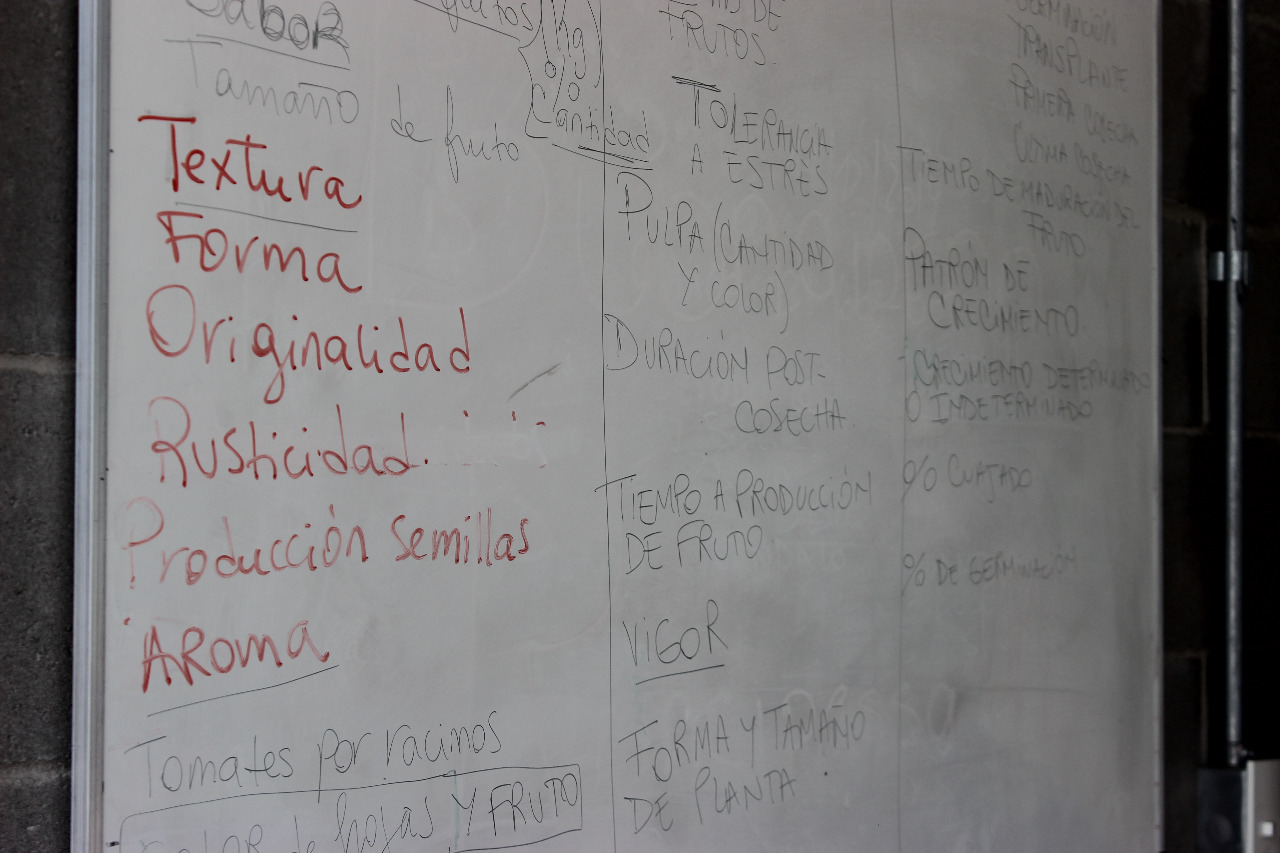 Sabor
Tamaño de fruto
Kg
ó
Cantidad
Textura
Forma
Originalidad
Rusticidad.
Producción semillas
AROMA
Tomates por racimos
COLOR de hojas Y FRUTO
DE
FRUTOS.
TOLERANCIA
A ESTRÈS
PULPA (CANTIDAD
Y COLOR)
DURACIÓN POST-
COSECHA.
TIEMPO A PRODUCCIÓN
DE FRUTO.
VIGOR
FORMA Y TAMAÑO
DE PLANTA
TRANSPLANTE
PRIMERA COSECHA
ÚLTIMA COSECHA
TIEMPO DE MADURACIÓN DEL
FRUTO
PATRÓN DE
CRECIMIENTO.
CRECIMIENTO DETERMINADO
O INDETERMINADO
% CUAJADO
% DE GERMINACIÓN